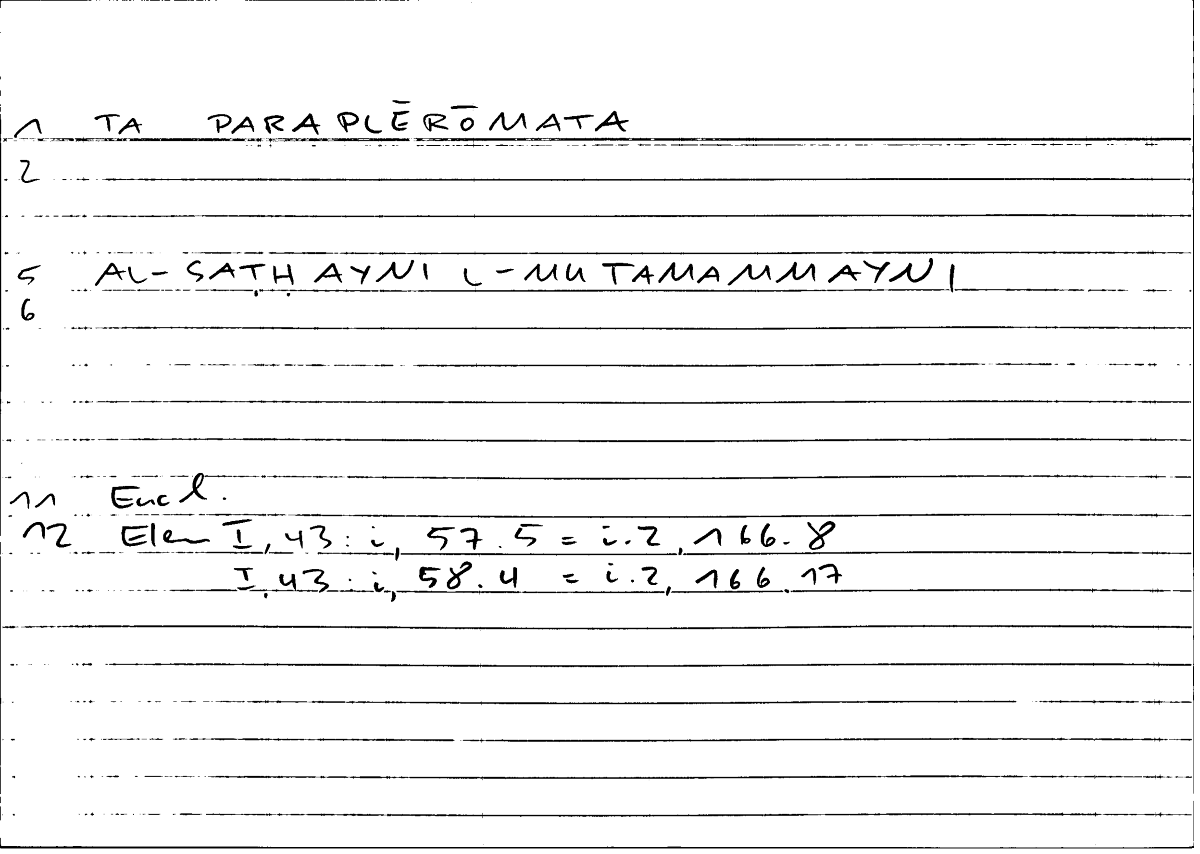 1 TA PARAPLĒRŌMATA
2
5 AL-SAṬḤAYNI L-MUTAMAMMAYNI
6
11 Eucl.
12 Elem I, 43: i, 57.5 = i.2, 166.8
I, 43: i, 58.4 = i.2, 166.17